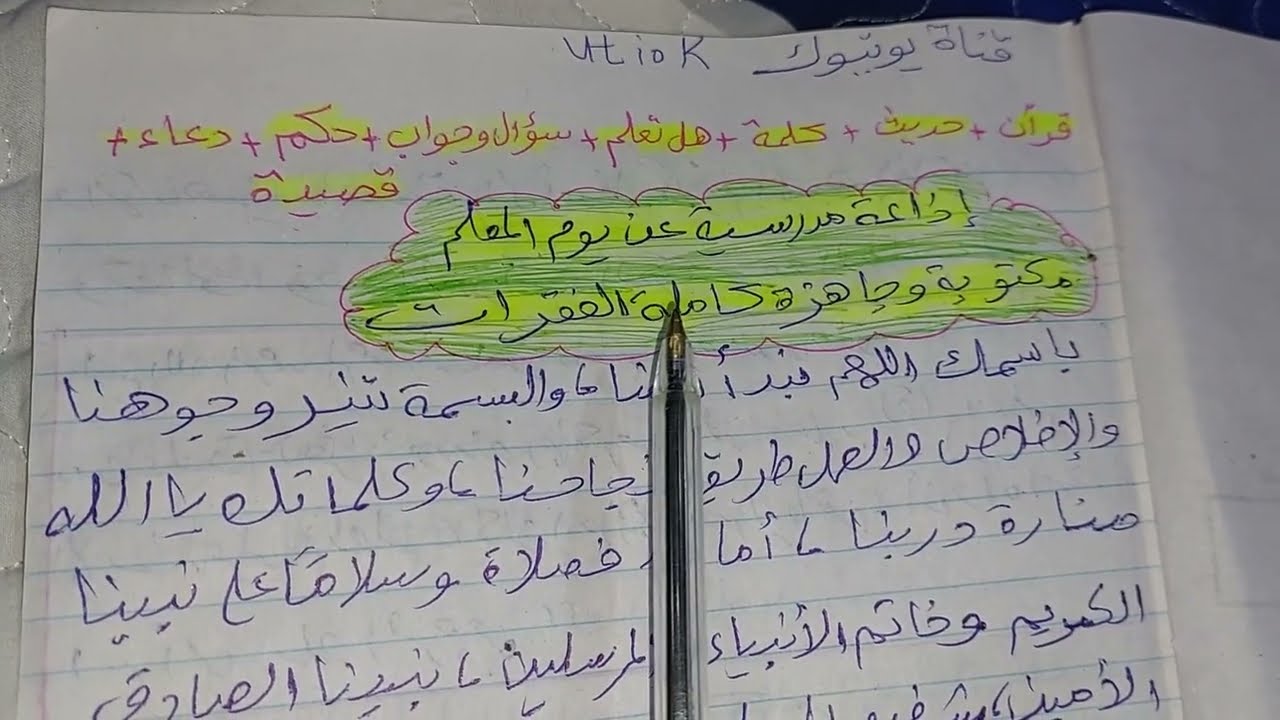 قناة يوتيوك UtioK
قرآن + حديث + كلمة + هل تعلم + سؤال وجواب + حكم + دعاء +
قصيدة
إذاعة مدرسية عن يوم المعلم
مكتوبة وجاهزة كاملة الفقرات
باسمك اللهم نبدأ ، والبسمة تنير وجوهنا
والإخلاص والعمل طريق نجاحنا ، وكلماتك يا الله
منارة دربنا ، أما فصلاة وسلامًا على نبينا
الكريم وخاتم الأنبياء المرسلين ، نبينا الصادق
الأمين ، شفيع